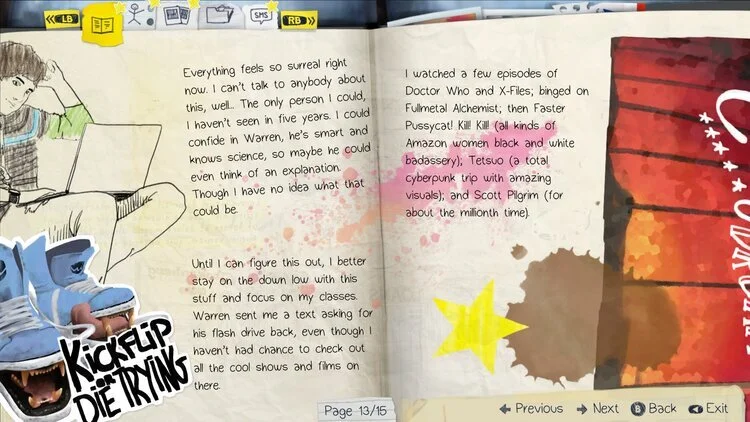 LB
SMS
RB
Everything feels so surreal right
now. I can't talk to anybody about
this, well... The only person I could,
I haven't seen in five years. I could
confide in Warren, he's smart and
knows science, so maybe he could
even think of an explanation.
Though I have no idea what that
could be.
Until I can figure this out, I better
stay on the down low with this
stuff and focus on my classes.
Warren sent me a text asking for
his flash drive back, even though I
haven't had chance to check out
all the cool shows and films on
there.
KICKFLIP
OR
DIE TRYING
I watched a few episodes of
Doctor Who and X-Files; binged on
Fullmetal Alchemist; then Faster
Pussycat! Kill! Kill! (all kinds of
Amazon women black and white
badassery); Tetsuo (a total
cyberpunk trip with amazing
visuals); and Scott Pilgrim (for
about the millionth time).
Page 13/15
Previous
Next
B Back
Exit